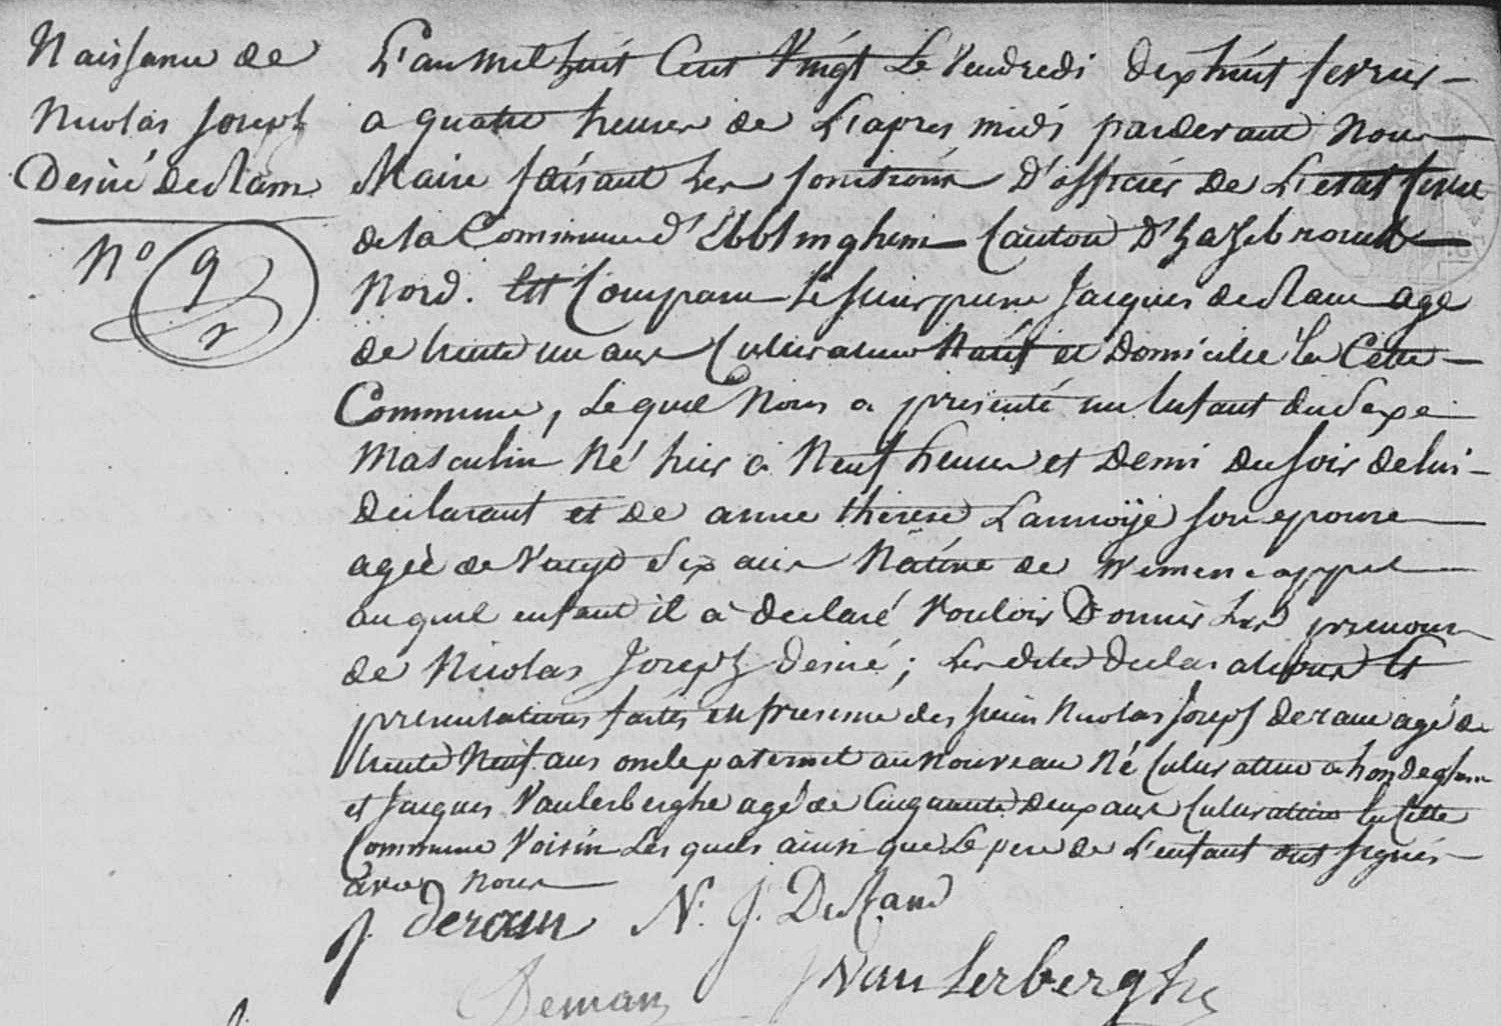 Naissance de
Nicolas Joseph
Desiré
N° 9
L'an mil huit Cent Vingt Le Vendredi dix huit fevrier
a quatre heures de L'apres midi pardevant Nous
Maire faisant les fonctions D'officier de L'etat Civil
de la Commune d'Ebblinghem Canton D'hazebrouck
Nord. Est Comparu Le sieur Jacques age
de trente un ans Cultivateur Natif et Domicilié En Cette
Commune, Lequel Nous a presenté un Enfant du Sexe
Masculin Né hier à Neuf heures et Demi du soir de lui
declarant et de anne therese Lannoÿe son epouse
ageé de Vingt Six ans Native de
auquel enfant il a declaré Vouloir Donner Les prenoms
de Nicolas Joseph desiré; Les dites declarations Et
presentations faites en presence des sieurs Nicolas Joseph agé de
trente Neuf ans oncle paternel au nouveau Né Cultivateur a hondeghem
et Jacques Vanlerberghe agé de Cinquante deux ans Cultivateur En Cette
Commune Voisin Les quels ainsi que Le pere de L'enfant ont signés
avec nous
J. N. J.
J Vanlerberghe
Deman